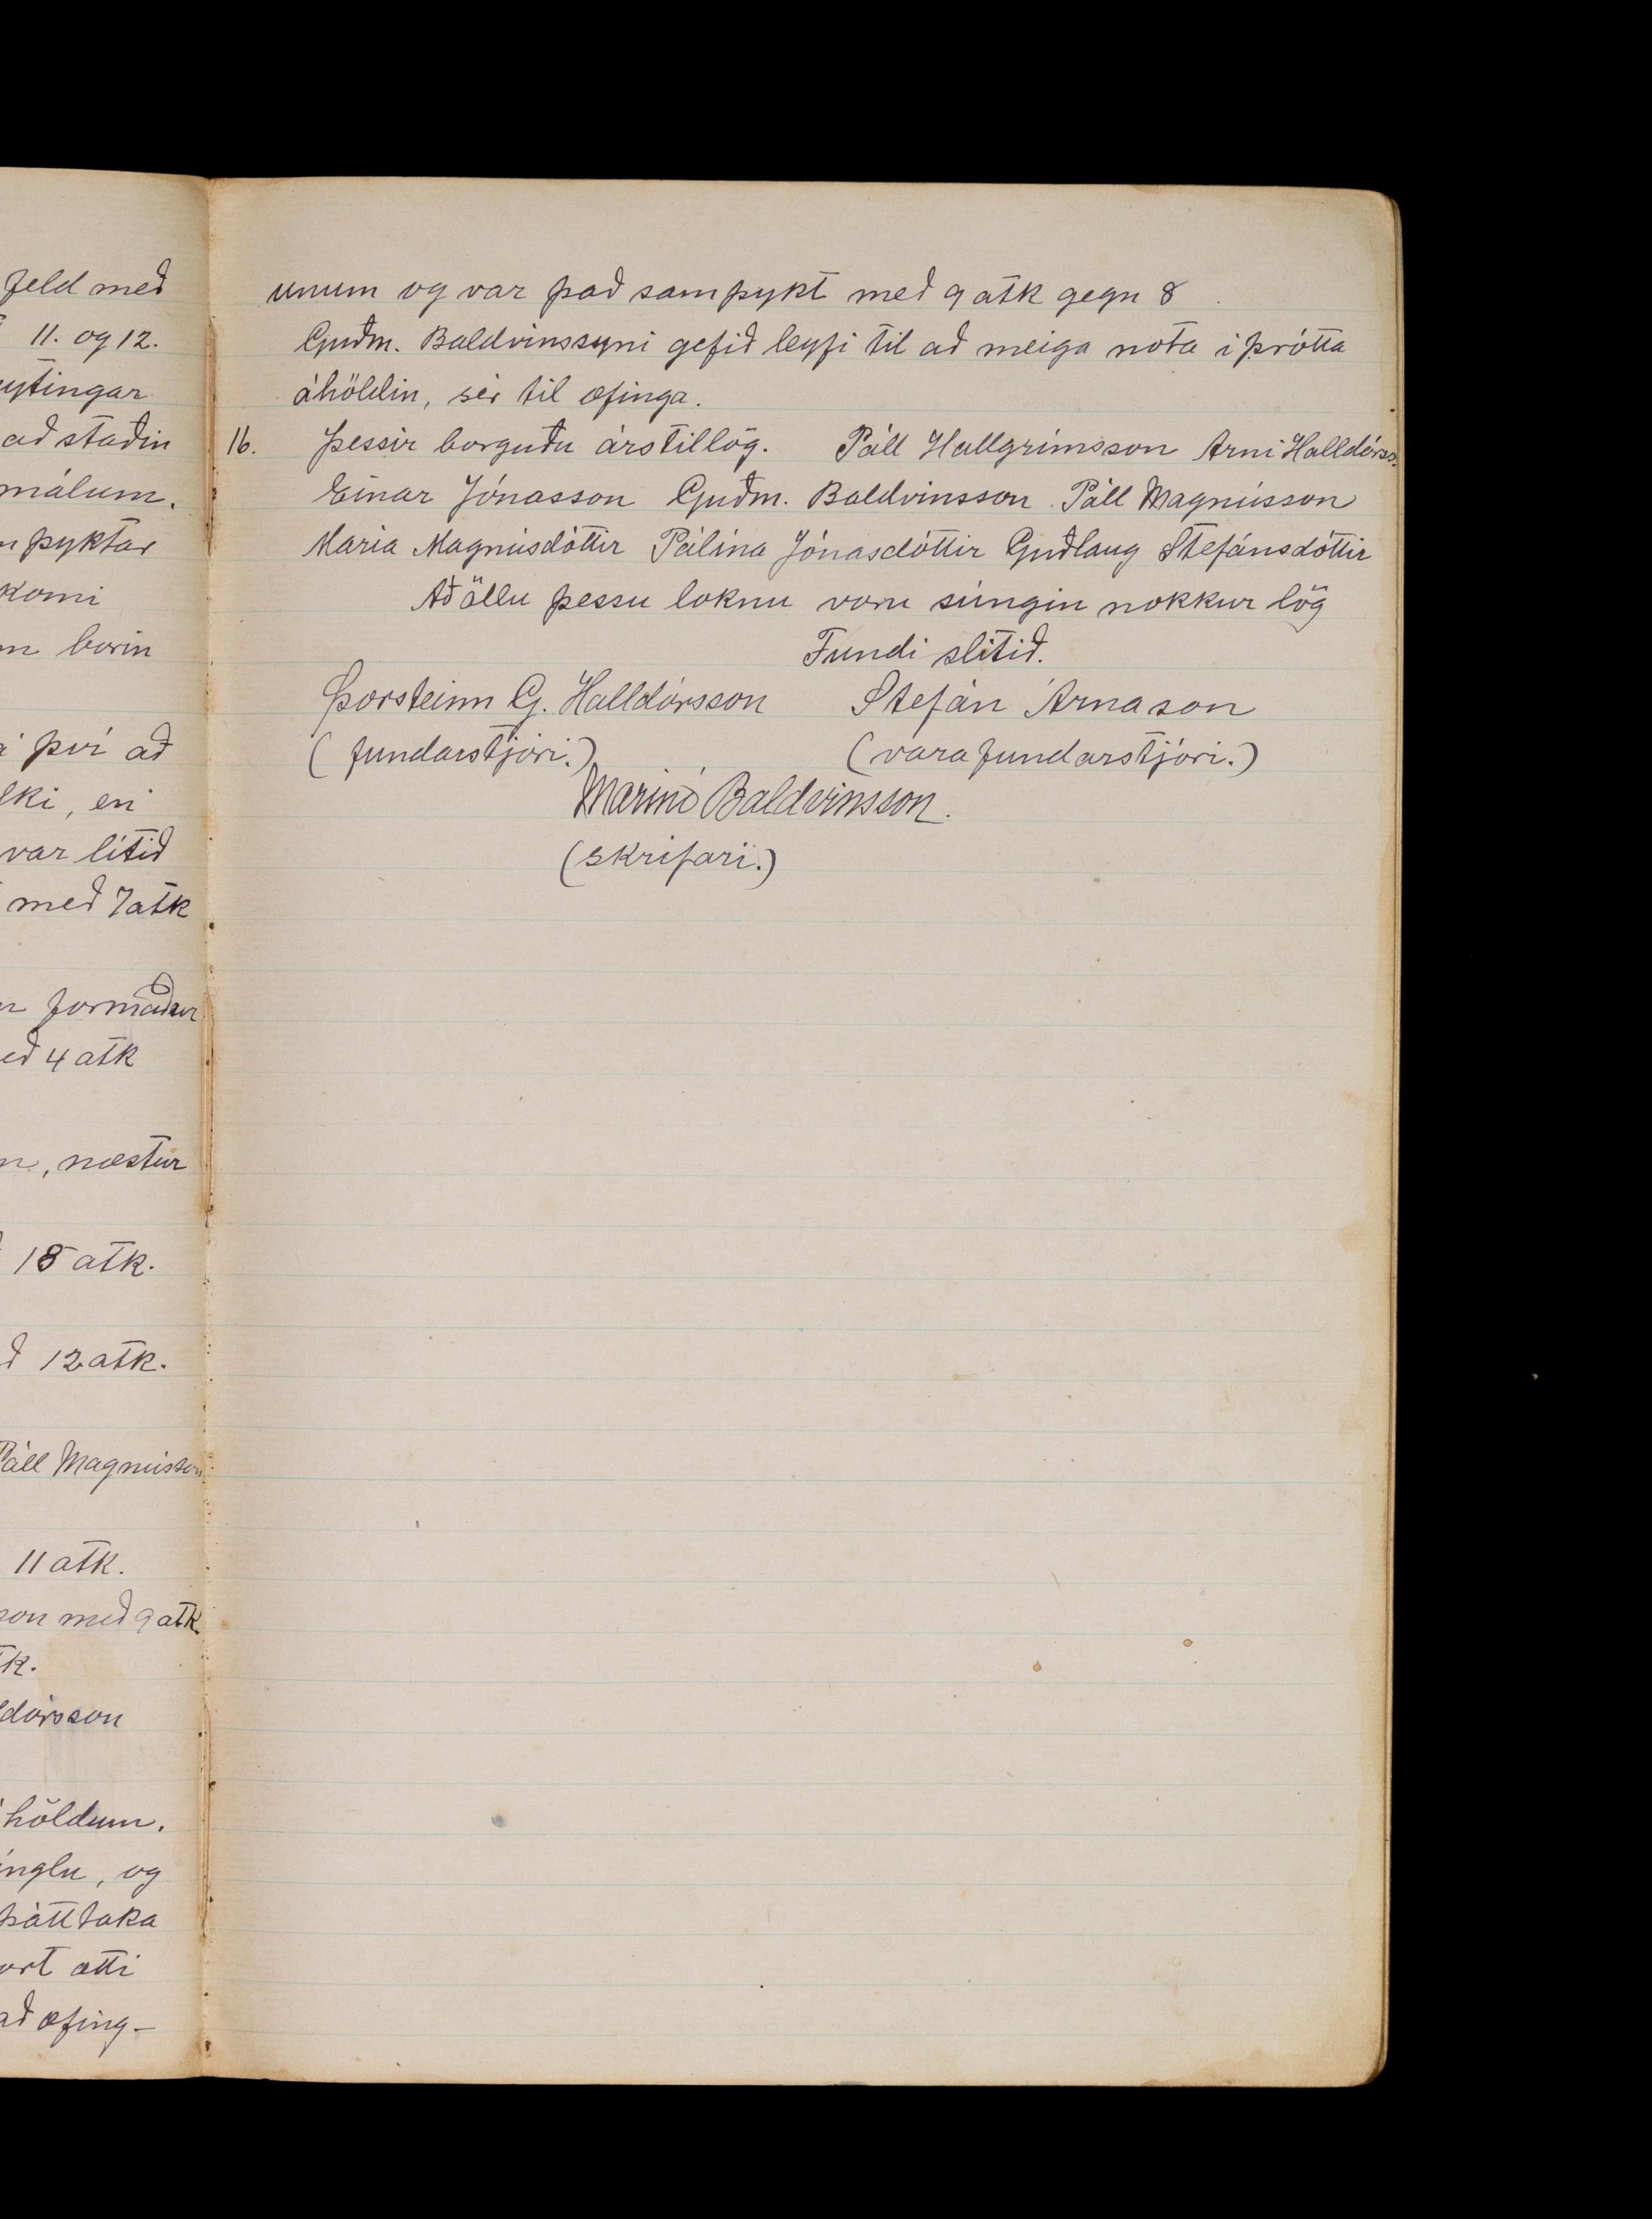 feld með
11. og 12.
ytingar
að staðin
málum.
þyktar
komi
borin
því að
ki, en
var lítið
með 7 atk
formaður
eð 4 atk
n, næstur
15 atk.
ð 12 atk.
Páll Magnússon
11 atk.
son með 9 atk.
tk.
ldórsson
höldum.
inglu, og
þátttaka
ort ætti
að æfing-
unum og var það samþykt með 9 atk gegn 8.
Guðm. Baldvinssyni gefið leyfi til að meiga nota íþrótta
áhöldin, sér til æfinga.
16. Þessir borguðu árstillög. Páll Hallgrímsson Arni Halldórss.
Einar Jónasson Guðm. Baldvinsson Páll Magnússon
María Magnúsdóttir Pálína Jónasdóttir Guðlaug Stefánsdóttir
Að öllu þessu loknu voru súngin nokkur lög
Fundi slitið.
Þorsteinn G. Halldórsson Stefán Árnason
(fundarstjóri.) (varafundarstjóri.)
Marinó Baldvinsson.
(skrifari.)